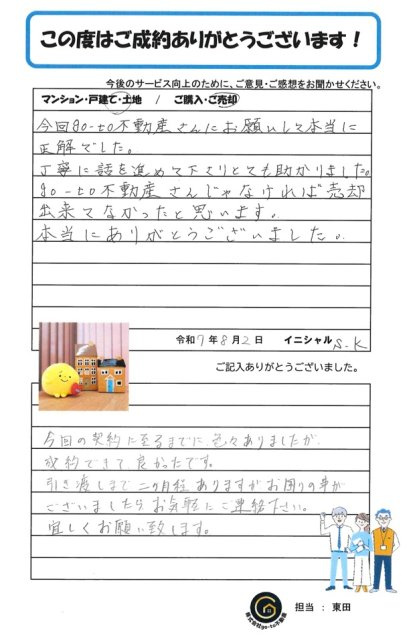 この度はご成約ありがとうございます！
今後のサービス向上のために、ご意見・ご感想をお聞かせください。
マンション・戸建て・土地　/　ご購入・ご売却
今回go-to不動産さんにお願いして本当に
正解でした。
丁寧に話を進めて下さりとても助かりました。
go-to不動産さんじゃなければ売却
出来てなかったと思います。
本当にありがとうございました。
令和7年8月2日　イニシャル S.K
ご記入ありがとうございました。
今回の契約に至るまでに、色々ありましたが、
成約できて良かったです。
引き渡しまで二ヶ月程ありますがお困りの事が
ございましたらお気軽にご連絡下さい。
宜しくお願い致します。
株式会社go-to不動産
担当：東田